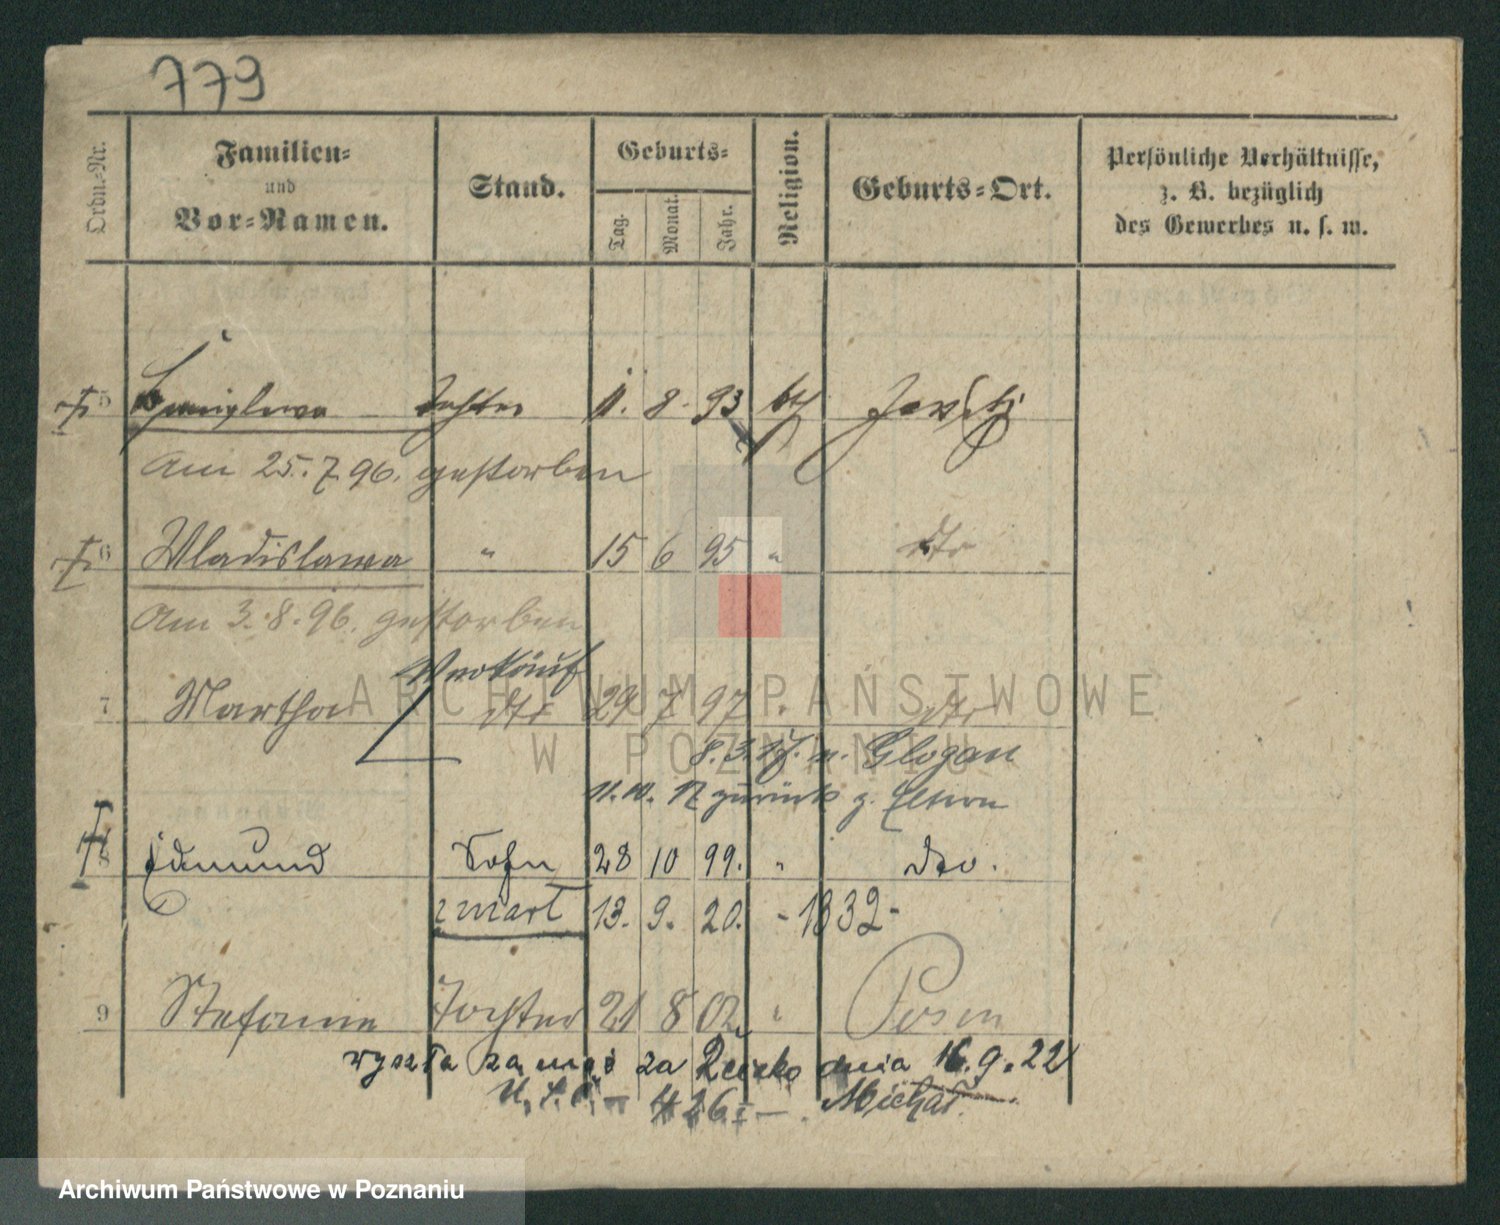 779
Ordn.-Nr.
Familien-
und
Vor-Namen.
Stand.
Geburts-
Tag.
Monat.
Jahr.
Religion.
Geburts-Ort.
Persönliche Verhältnisse,
z. B. bezüglich
des Gewerbes u. s. w.
5 Tochter 11. 8. 93 kth
Am 25.7.96. gestorben
6 Wladislawa " 15 6 95 " dto
Am 3.8.96. gestorben
Verkäuf
7 Martha dto 29 7 97 " dto
8.3.17. n. Glogau
11.10.17 zurück z. Eltern
8 Edmund Sohn 28 10 99. " dto.
zmarł 13. 9. 20. -1832-
9 Stefanie Tochter 21 8 02 " Posen
wyszła za mąż za dnia 16.9.22
U.S.C. - 426 - Michał
ARCHIWUM PAŃSTWOWE
W POZNANIU
Archiwum Państwowe w Poznaniu